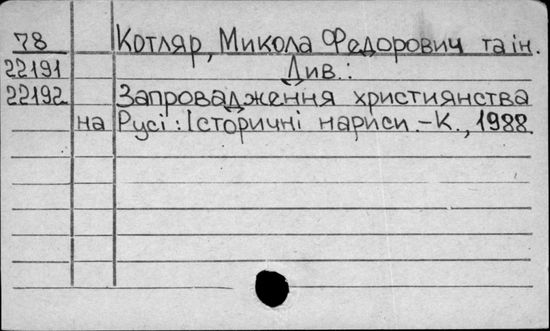 78 Котляр, Микола Федорович та ін.
22191 Див.:
22192 Запровадження християнства
на Русі: Історичні нариси.-К., 1988.